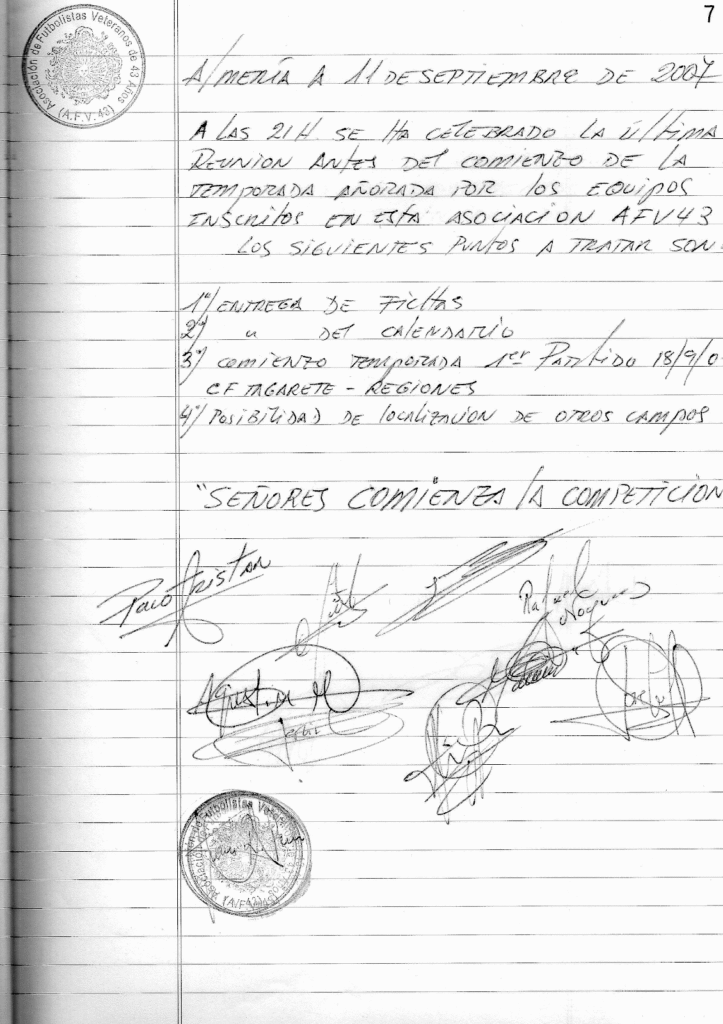 7
Asociación de Futbolistas Veteranos de 43 Años
(A.F.V. 43)
Almería a 11 de Septiembre de 2007
A las 21 H. se ha celebrado la última
Reunion antes del comienzo de la
temporada añorada por los equipos
inscritos en esta asociacion AFV43
Los siguientes puntos a tratar son:
1º/ entrega de Fichas
2º/ " del calendario
3º/ comienzo temporada 1er Partido 18/9/0
C.F TAGARETE - REGIONES
4º/ Posibilidad de localizacion de otros campos
"SEÑORES COMIENZA LA COMPETICION
Paco Tristan
Rafael
Agustin M
Javier
Asociación de Futbolistas Veteranos
(A.F.V. 43)